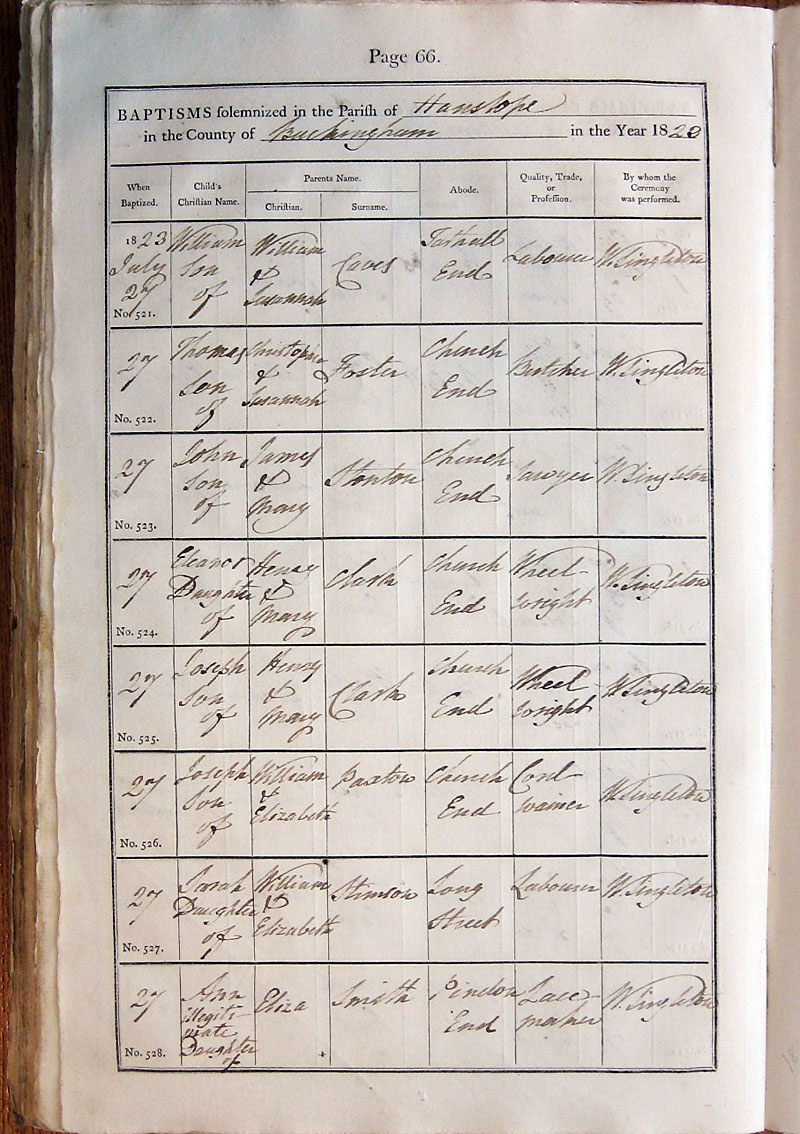 Page 66.
BAPTISMS solemnized in the Parish of Hanslope
in the County of Buckingham in the Year 1823
When Baptized.
Child's Christian Name.
Parents Name.
Christian.
Surname.
Abode.
Quality, Trade, or Profession.
By whom the Ceremony was performed.
1823 July 27 No. 521.
William Son of
William & Susannah
Caves
Tathall End
Labourer
W. Singleton
27 No. 522.
Thomas Son of
Christopher & Susannah
Foster
Church End
Butcher
W. Singleton
27 No. 523.
John Son of
James & Mary
Stonton
Church End
Sawyer
W. Singleton
27 No. 524.
Eleanor Daughter of
Henry & Mary
Clark
Church End
Wheel-wright
W. Singleton
27 No. 525.
Joseph Son of
Henry & Mary
Clark
Church End
Wheel wright
W. Singleton
27 No. 526.
Joseph Son of
William & Elizabeth
Paxton
Church End
Cord-wainer
W. Singleton
27 No. 527.
Sarah Daughter of
William & Elizabeth
Stimson
Long Street
Labourer
W. Singleton
27 No. 528.
Ann illegiti-mate Daughter of
Eliza
Smith
Pindon End
Lace-maker
W. Singleton